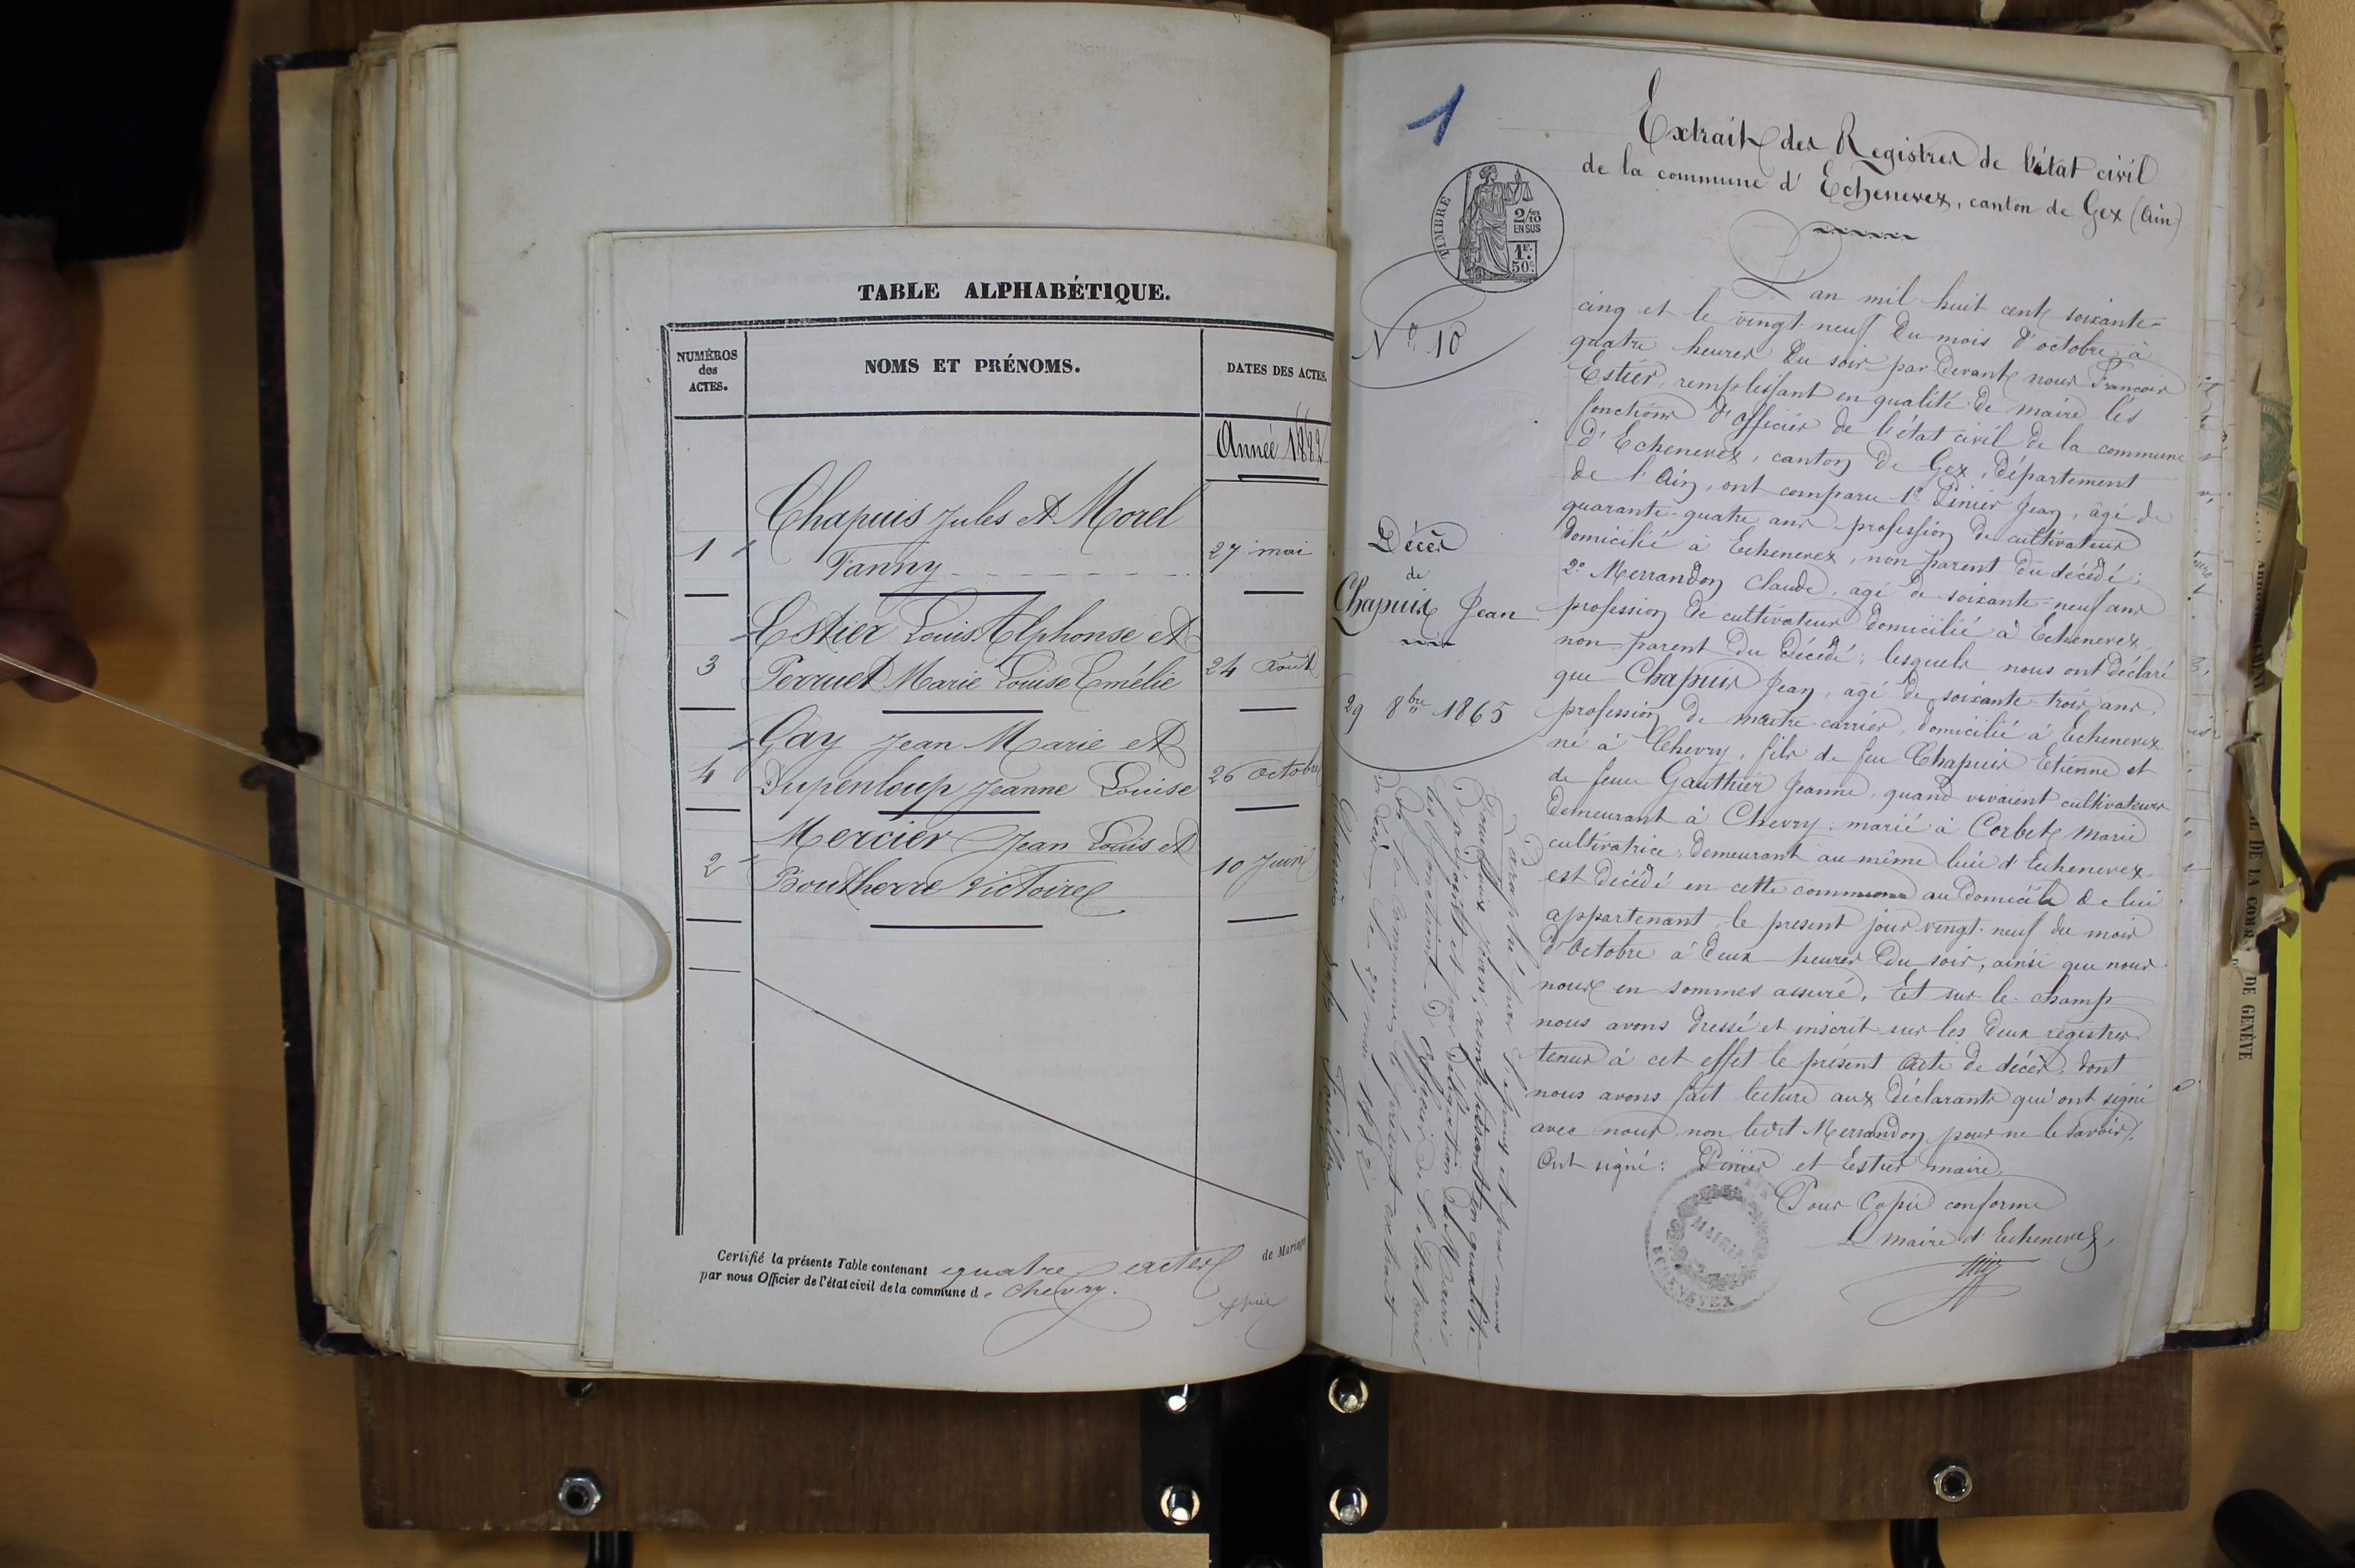 TABLE ALPHABÉTIQUE.
NUMÉROS des ACTES.
NOMS ET PRÉNOMS.
DATES DES ACTES.
Année 1882
Chapuis Jules et Morel
1 Fanny 27 mai
Estier Louis Alphonse et
3 Perruet Marie Louise Emélie 24 Août
Gay Jean Marie et
4 Dupenloup Jeanne Louise 26 Octobre
Mercier Jean Louis et
2 Boutherre Victoire 10 Juin
Certifié la présente Table contenant quatre actes de Mariage
par nous Officier de l'état civil de la commune de Chevry.
1
Extrait des Registres de l'état civil
de la commune d'Echenevex, canton de Gex (Ain)
TIMBRE
2/10
EN SUS
1F.
50c.
N° 10
Décès
de
Chapuix Jean
29 8bre 1865
L'an mil huit cent soixante-
cinq et le vingt-neuf du mois d'octobre à
quatre heures du soir par devant nous François
Estier, remplissant en qualité de maire les
fonctions d'officier de l'état civil de la commune
d'Echenevex, canton de Gex, département
de l'Ain, ont comparu 1° Pinier Jean, âgé de
quarante-quatre ans profession de cultivateur
domicilié à Echenevex, non parent du décédé;
2° Merrandon Claude, âgé de soixante-neuf ans
profession de cultivateur domicilié à Echenevex,
non parent du décédé; lesquels nous ont déclaré
que Chapuis Jean, âgé de soixante-trois ans,
profession de maître-carrier, domicilié à Echenevex
né à Chevry, fils de feu Chapuis Etienne et
de feue Gauthier Jeanne, quand vivaient cultivateurs
demeurant à Chevry; marié à Corbet Marie
cultivatrice, demeurant au même lieu d'Echenevex
est décédé en cette commune au domicile de lui
appartenant, le présent jour vingt-neuf du mois
d'Octobre à deux heures du soir, ainsi que nous
nous en sommes assuré. Et sur le champ
nous avons dressé et inscrit sur les deux registres
tenus à cet effet le présent acte de décès, dont
nous avons fait lecture aux déclarants qui ont signé
avec nous, non ledit Merrandon pour ne le savoir.
Ont signé: Pinier et Estier maire.
Pour Copie conforme
L maire d'Echenevex,
MAIRIE
ECHENEVEX
Paraphé par l'époux et par nous
remplissant en qualité
d'adjoint et par délégation du Maire
les fonctions d'officier de l'état civil
de la commune le présent extrait
DE LA COUR DE GENÈVE